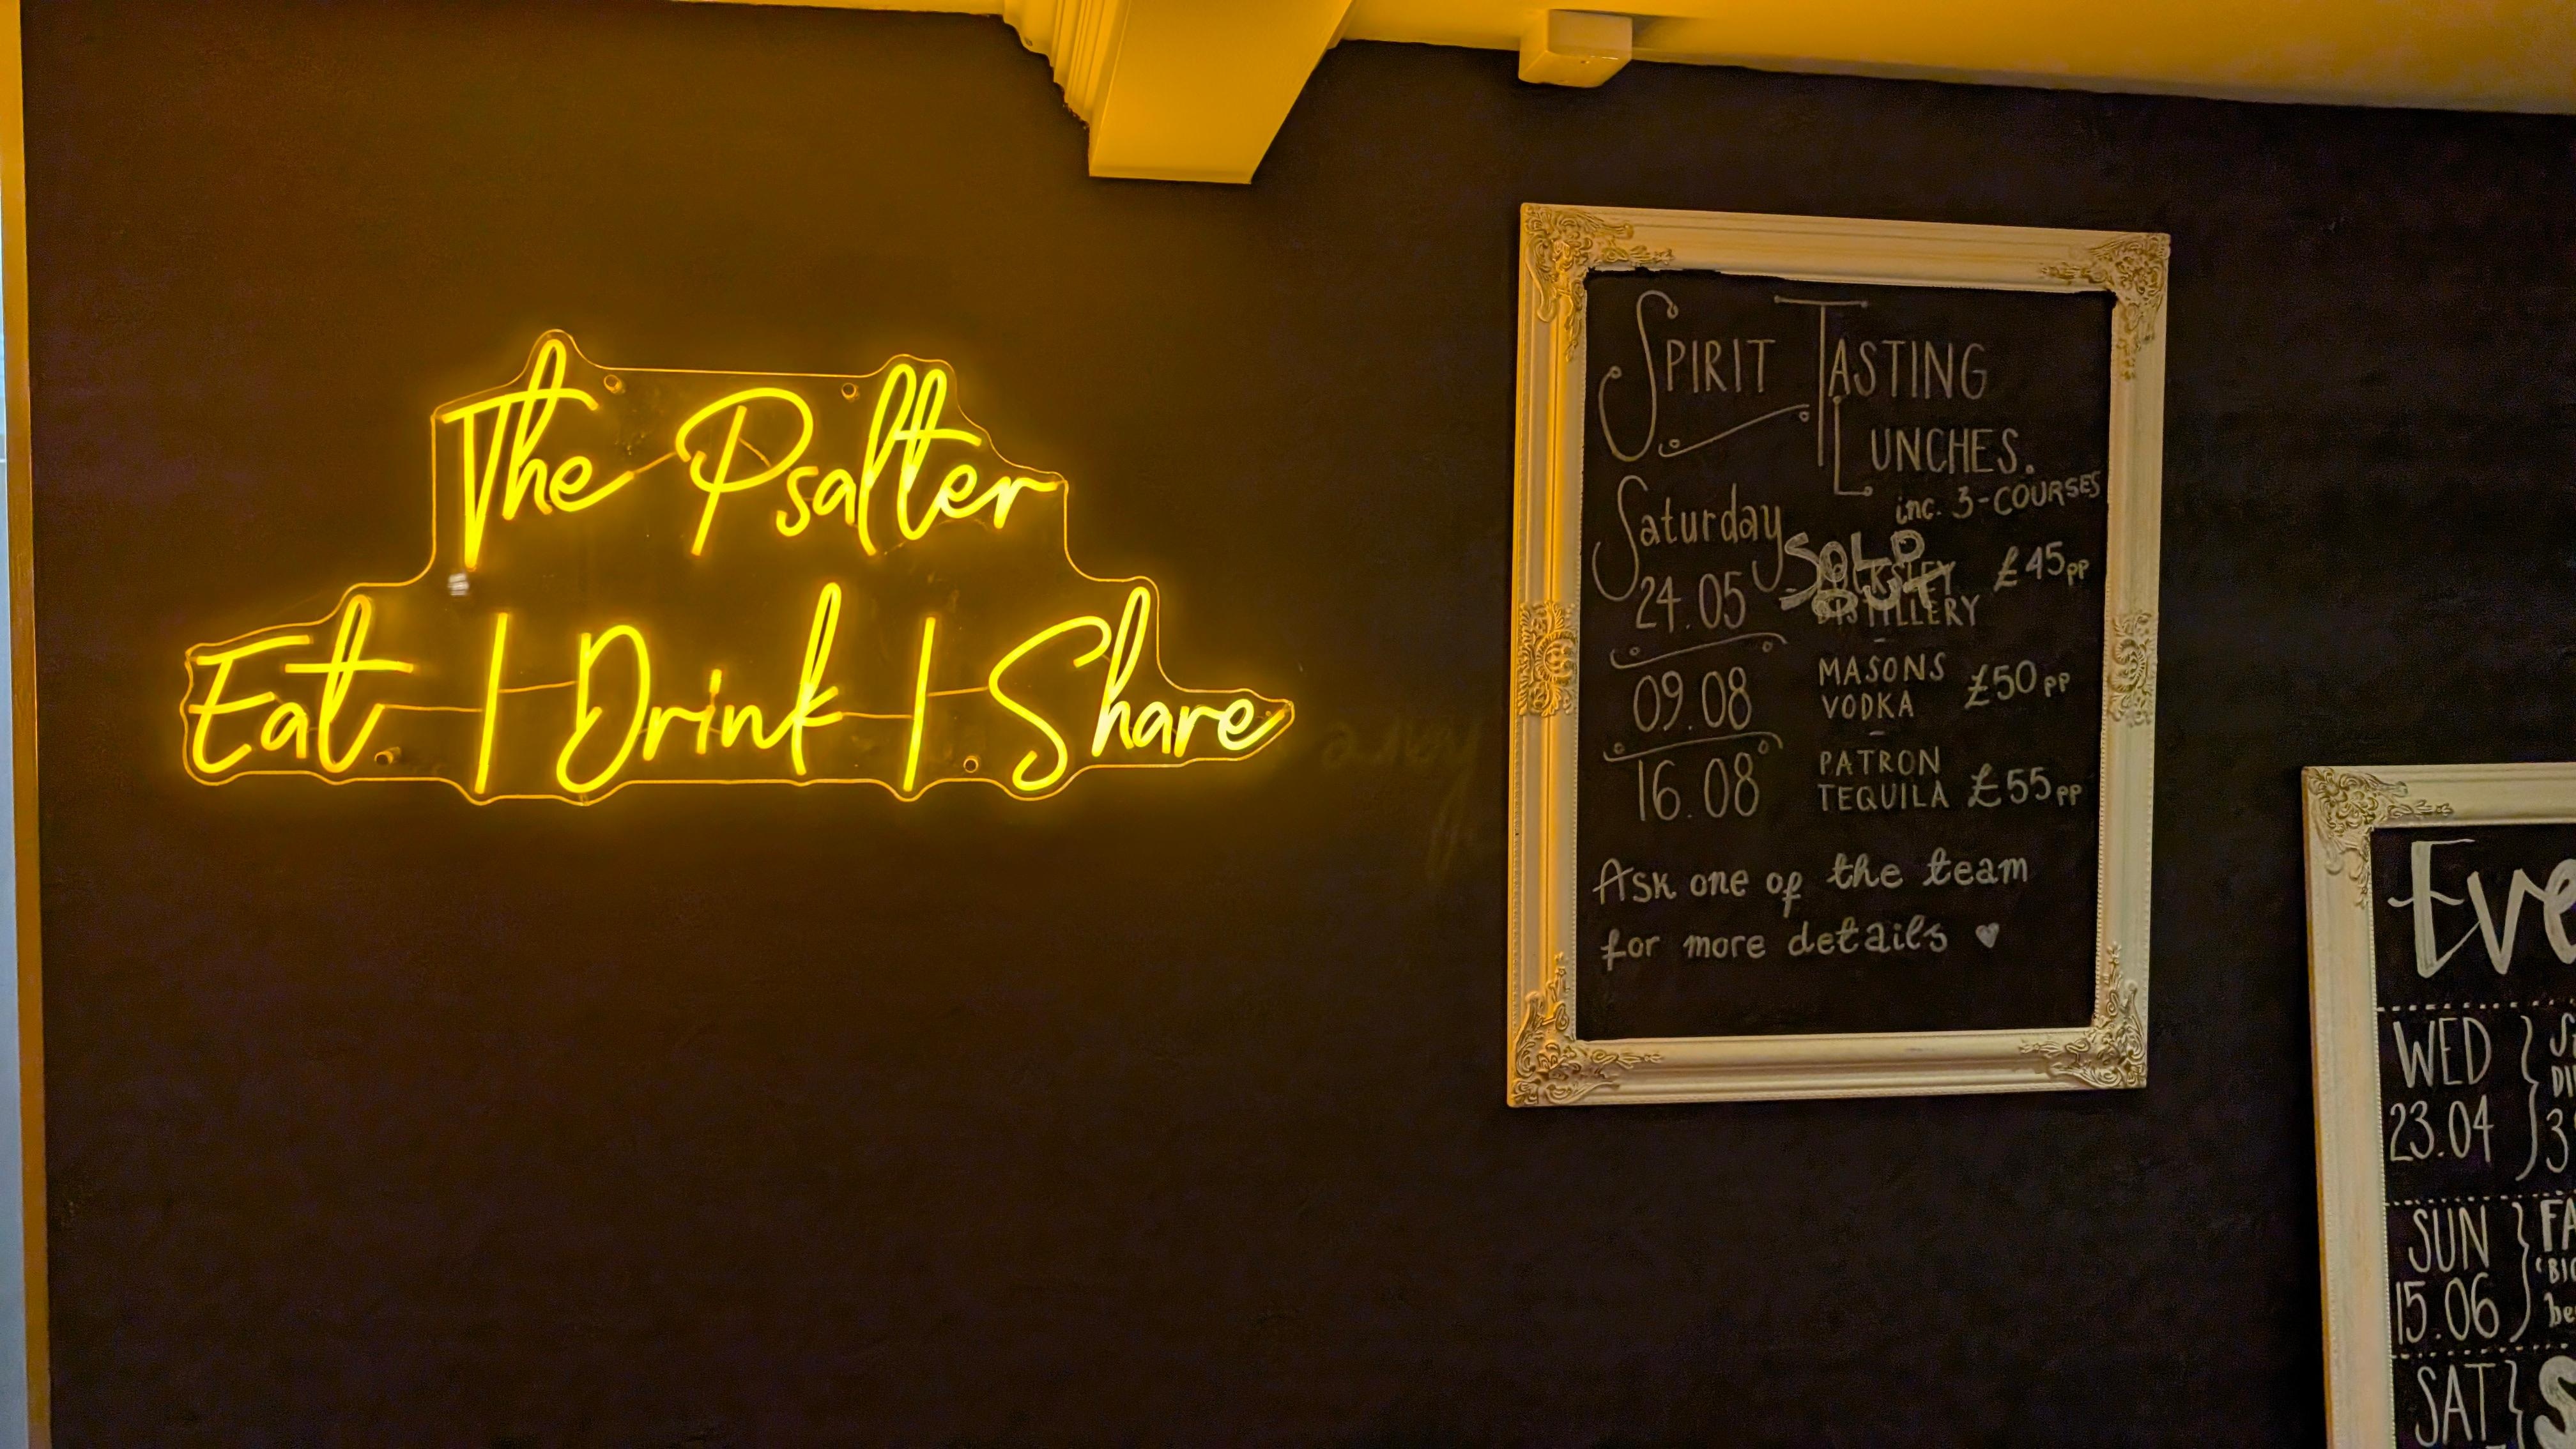 The Psalter
Eat | Drink | Share
SPIRIT TASTING
LUNCHES.
inc. 3-COURSES
Saturday
24.05 SOLD OUT DISTILLERY £45pp
09.08 MASONS VODKA £50pp
16.08 PATRON TEQUILA £55pp
Ask one of the team
for more details ♥
WED
23.04
SUN
15.06
SAT